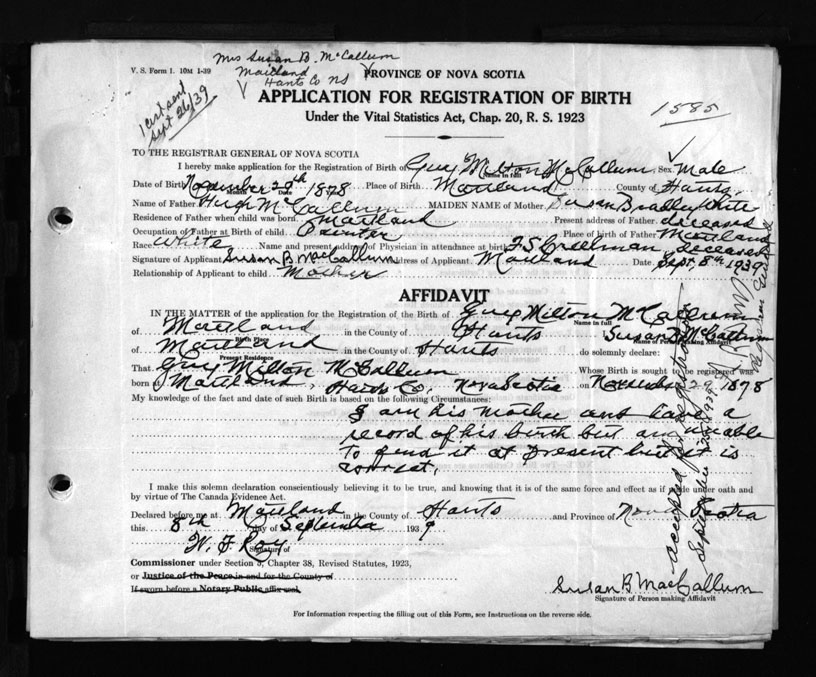 Mrs Susan B. McCallum
V. S. Form 1. 10M 1-39
Maitland
Hants Co NS
PROVINCE OF NOVA SCOTIA
1 cert sent
Sept 26/39
APPLICATION FOR REGISTRATION OF BIRTH
1585
Under the Vital Statistics Act, Chap. 20, R. S. 1923
TO THE REGISTRAR GENERAL OF NOVA SCOTIA
I hereby make application for the Registration of Birth of Guy Milton McCallum Sex Male
Name in full
Date of Birth November 29th 1878 Place of Birth Maitland County of Hants
Name of Father Hugh McCallum MAIDEN NAME of Mother Susan Bradley White
Residence of Father when child was born. Maitland Present address of Father deceased
Occupation of Father at Birth of child Painter Place of birth of Father Maitland
Race White Name and present address of Physician in attendance at birth F. S. Creelman, deceased
Signature of Applicant Susan B MacCallum Address of Applicant Maitland Date Sept, 8th 1939
Relationship of Applicant to child Mother
AFFIDAVIT
IN THE MATTER of the application for the Registration of the Birth of Guy Milton McCallum
Name in full
of Maitland in the County of Hants Susan B McCallum
Birth Place
Name of Person making Affidavit
of Maitland in the County of Hants do solemnly declare:
Present Residence
That Guy Milton McCallum Whose Birth is sought to be registered was
born at Maitland, Hants Co, Nova Scotia on November 29 1878
My knowledge of the fact and date of such Birth is based on the following Circumstances:
I am his Mother and have a
record of his birth but am unable
to send it at present but it is
correct.
I make this solemn declaration conscientiously believing it to be true, and knowing that it is of the same force and effect as if made under oath and
by virtue of The Canada Evidence Act.
Declared before me at Maitland in the County of Hants and Province of Nova Scotia
this 8th day of September 1939
W. F. Roy
Signature of
Commissioner under Section 5, Chapter 38, Revised Statutes, 1923,
or Justice of the Peace in and for the County of
If sworn before a Notary Public affix seal.
Susan B MacCallum
Signature of Person making Affidavit
For Information respecting the filling out of this Form, see Instructions on the reverse side.
accepted for registration
September
Registrar General